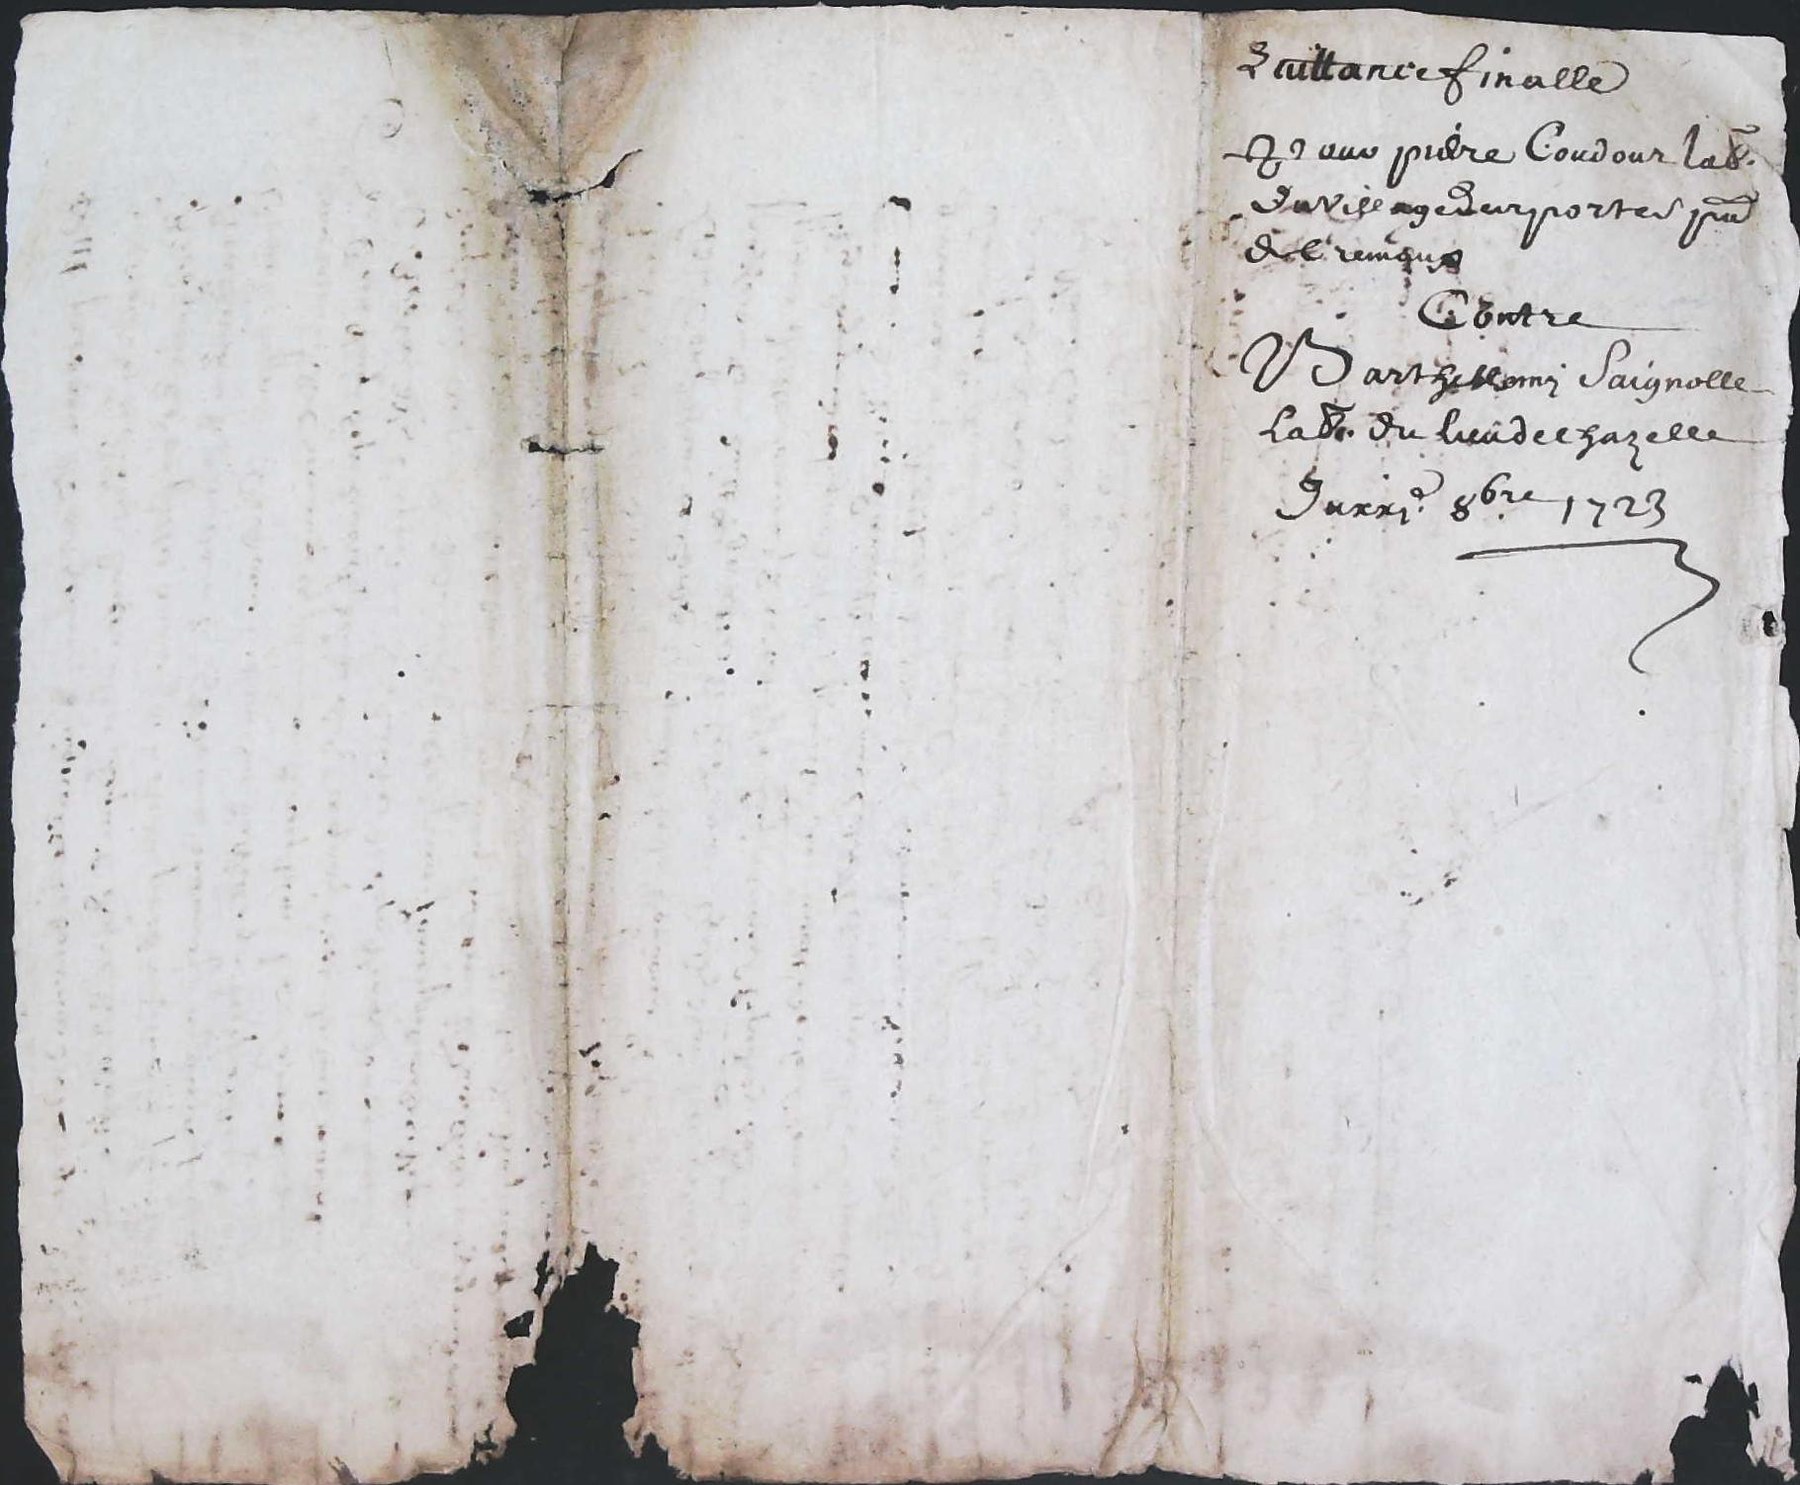 Quittance finalle
Pour pierre Coudour lab.
du village desportes psse
de Cremaux
Contre
Barthellemi Saignolle
Lab. du lieu de chazelle
Du xxje 8bre 1723